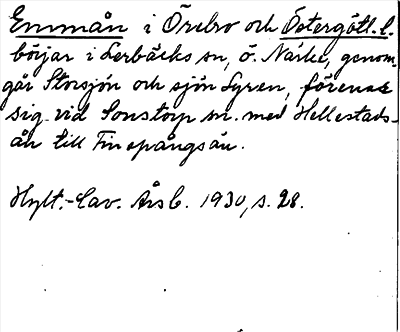 Emmån i Örebro och Östergötl. l.
börjar i Lerbäcks sn, ö. Närke, genom-
går Storsjön och sjön Lyren, förenar
sig vid Sonstorp sn. med Hellestads-
ån till Finspångsån.
Hylt.-Cav. Årsb. 1930, s. 28.